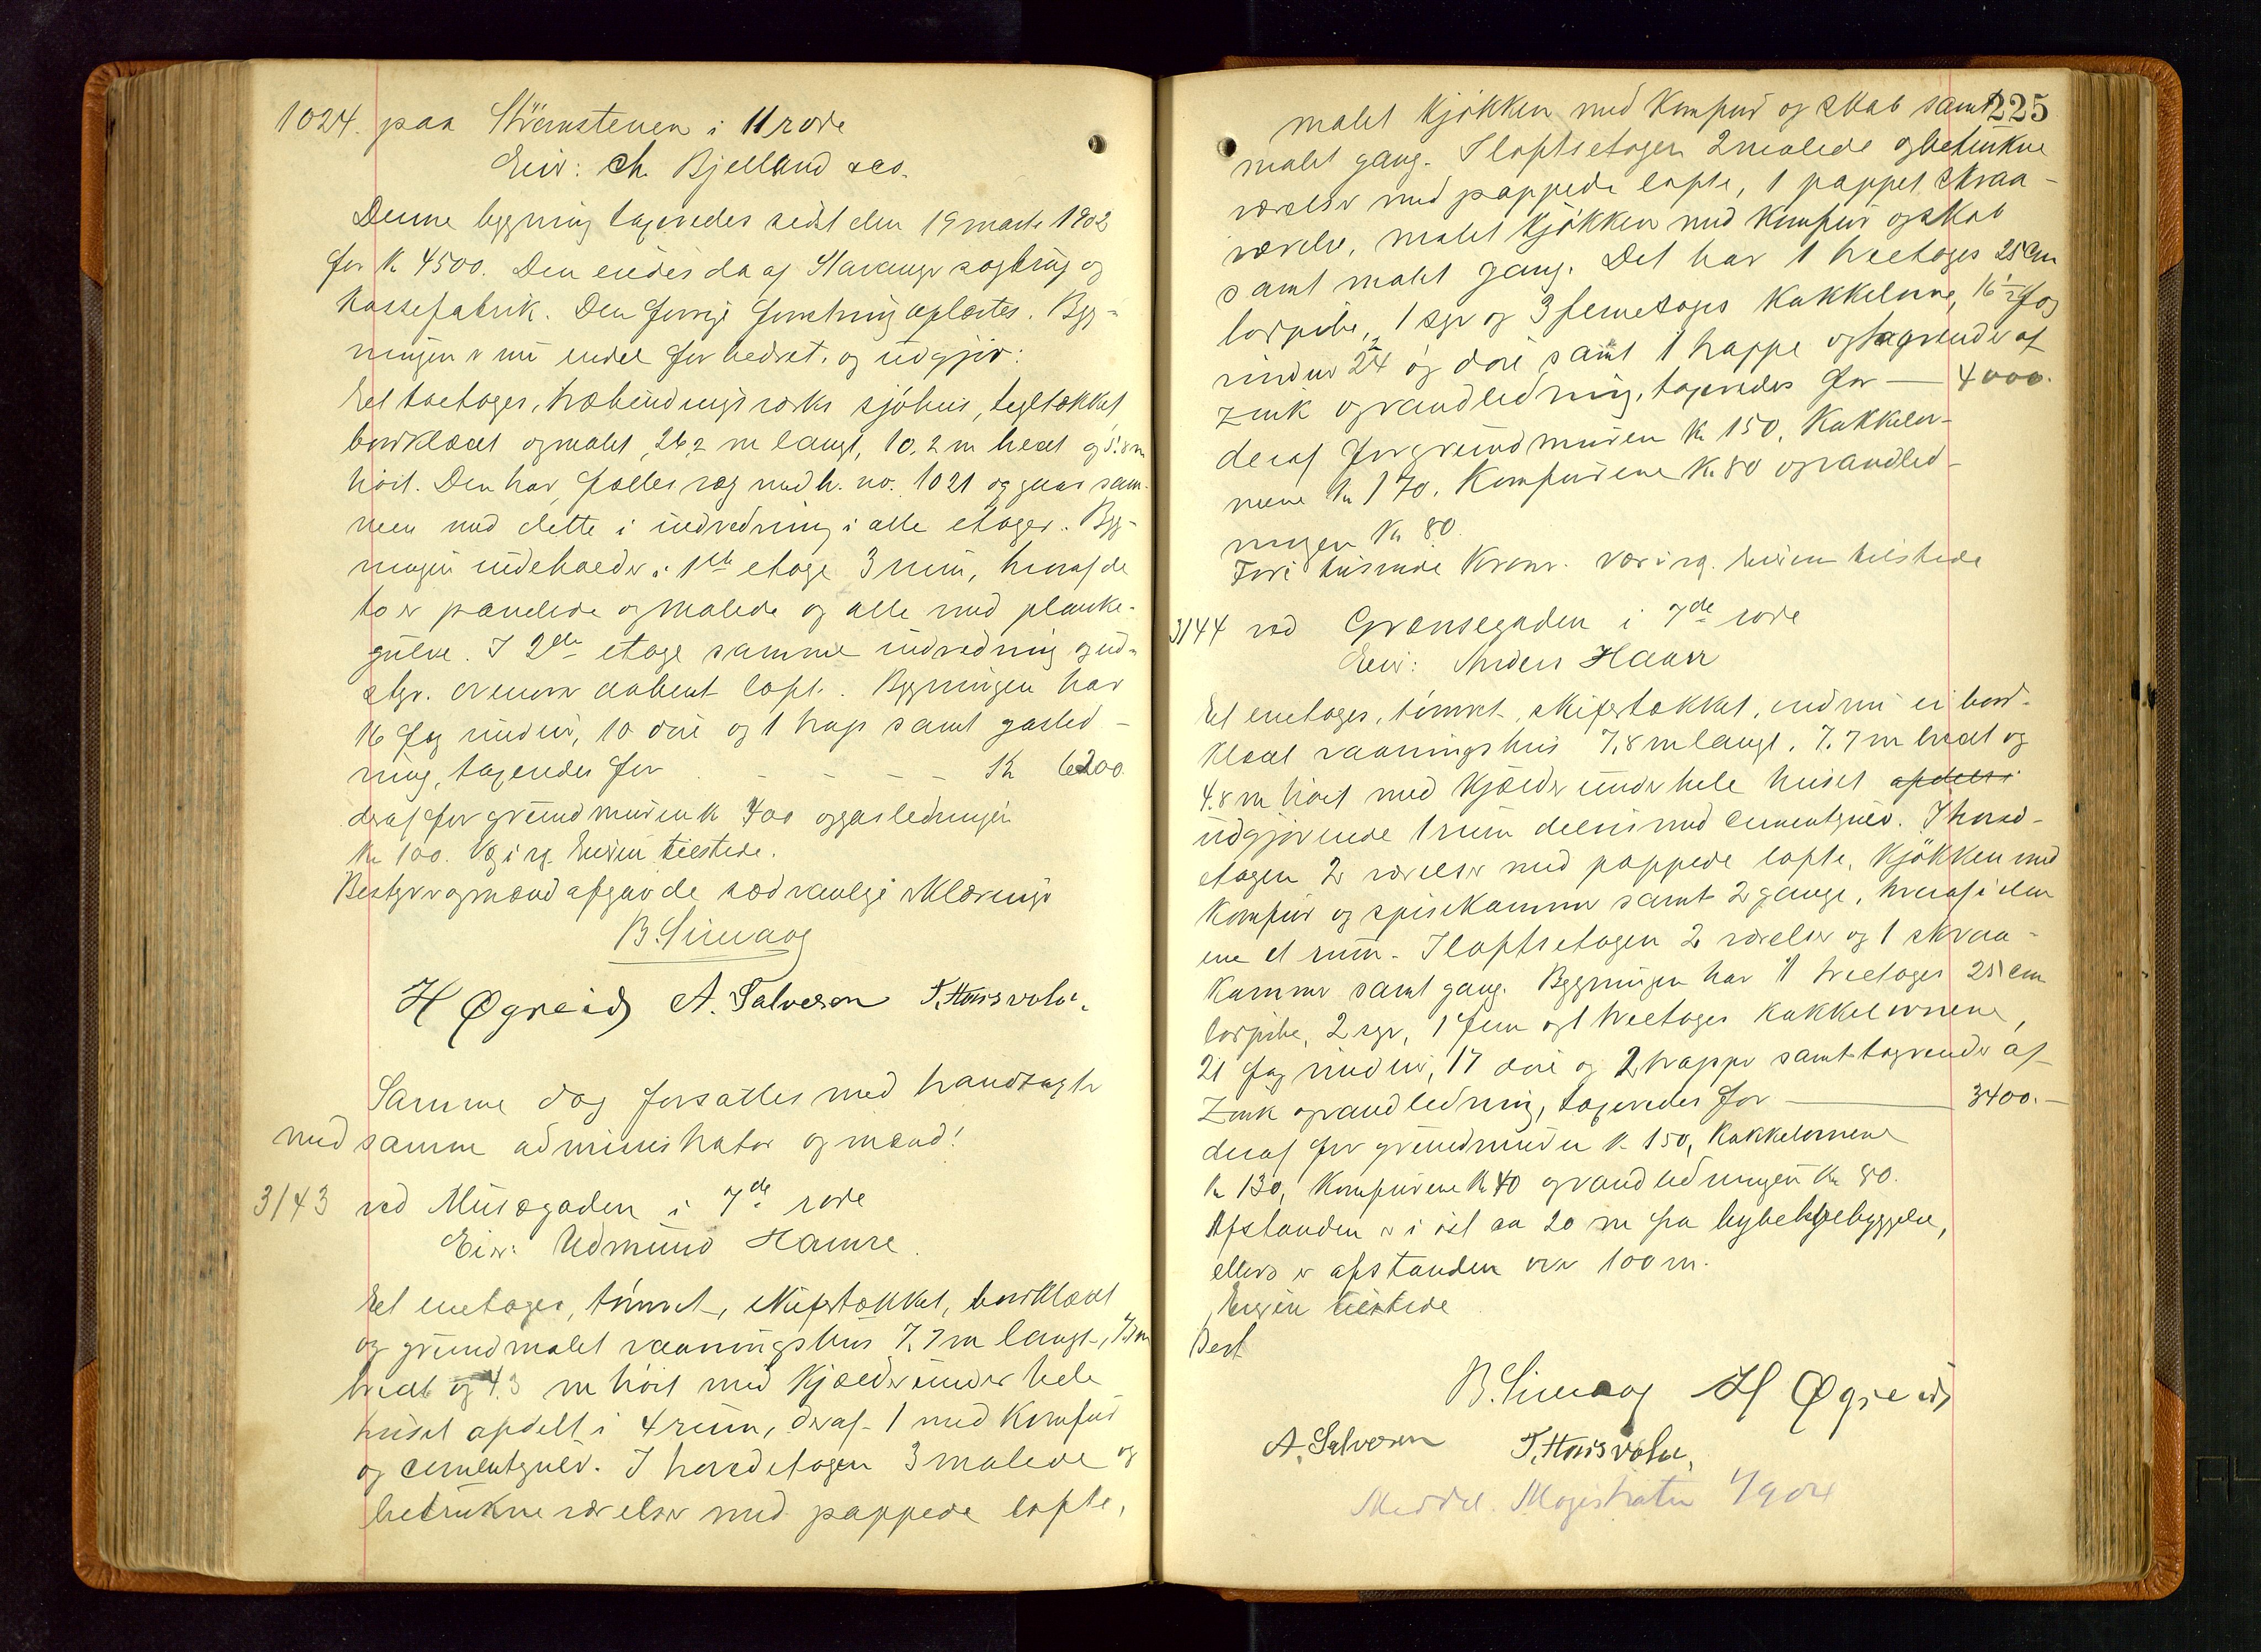 1024. paa Strømstenen i 11 rode
Eier: Ch. Bjelland & Co.
Denne bygning taxeredes sidst den 19 marts 1902
for K 4500. Den eiedes da af Stavanger sagbrug og
kassefabrik. Den forrige forretning oplæstes. Byg-
ningen er nu endel forbedret, og udgjør:
Et toetages, træbindingsværks sjøhus, tegltækket
bordklædt og malet, 26,2 m langt, 10,2 m bredt og 5.8 m
høit. Den har fælles væg med h. no. 1021 og gaar sam-
men med dette i indredning i alle etager. Byg-
ningen indeholder i 1ste etage 3 rum, hvoraf de
to er panelede og malede og alle med planke-
gulve. I 2den etage samme indredning og ud-
styr. ovenover aabent loft. Bygningen har
16 fag vinduer, 10 døre og 1 trap samt gasled-
ning, taxeredes for - - - - K 6200.
deraf for grundmuren K 400 og gasledningen
Kr 100. Væ i rg. Eieren tilstede.
Bestyrer og mænd afgav de sædvanlige erklæringer
B. Simaag
H Øgreid A. Salvesen T. Husvolu.
Samme dag forsattes med brandtagst
med samme administrator og mænd!
3143 ved Musægaden i 7de rode
Eier: Udmund Hamre.
Et enetages, tømret, skifertækket, bordklædt
og grundmalet vaaningshus 7,7 m langt, 7.7 m
bredt og 4.3 m høit med kjælder under hele
huset afdelt i 4 rum, deraf 1 med komfur
og cementgulv. I hovedetagen 3 malede og
betrukne værelser med pappede lofte,
225
malet kjøkken med komfur og skab samt
malet gang. I loftsetagen 2 malede og betrukne
værelser med pappede lofte, 1 pappet skraa-
værelse, malet kjøkken med komfur og skab
samt malet gang. Det har 1 treetages 25 cm
lørpibe, 1 sgr og 3 femetages kakkelovne, 16 1/2 fag
vinduer 24 døre samt 1 trappe og tagrender af
zink og vandledning, taxeredes for — 4000.
deraf for grundmuren K 150, Kakkelov-
nene K 170. Komfurene K. 80 og vandled-
ningen K 80.
Fire tusinde Kroner. Vær i rg. Eieren tilstede
3144 ved Grænsegaden i 7de rode
Eier: Anders Haarr
Et enetages, tømret, skifertækket, endnu ei bord-
klædt vaaningshus 7,8 m langt, 7,7 m bredt og
4.8 m høit med kjælder under hele huset afdelt i
udgjørende 1 rum delvis med cementgulv. I hoved-
etagen 2 værelser med pappede lofte, kjøkken med
komfur og spisekammer samt 2 gange, hvoraf i den
ene et rum. I loftsetagen 2 værelser og 1 skraa-
kammer samt gang. Bygningen har 1 treetages 25 cm
lørpibe, 2 sgr, 1 fem og 1 treetages kakkelovnene,
21 fag vinduer, 17 døre og 2 trapper samt tagrender af
zink og vandledning, taxeredes for — 3400.—
deraf for grundmuren K 150, Kakkelovnene
K 130, Komfurene K 40 og vandledningen K 80.
Afstanden er i øst ca 20 m fra bybebyggelse,
ellers er afstanden over 100 m.
Eieren tilstede
Best
B. Simaag H Øgreid
A. Salvesen T. Husvolu.
Meddel. Magistraten 1/9 04